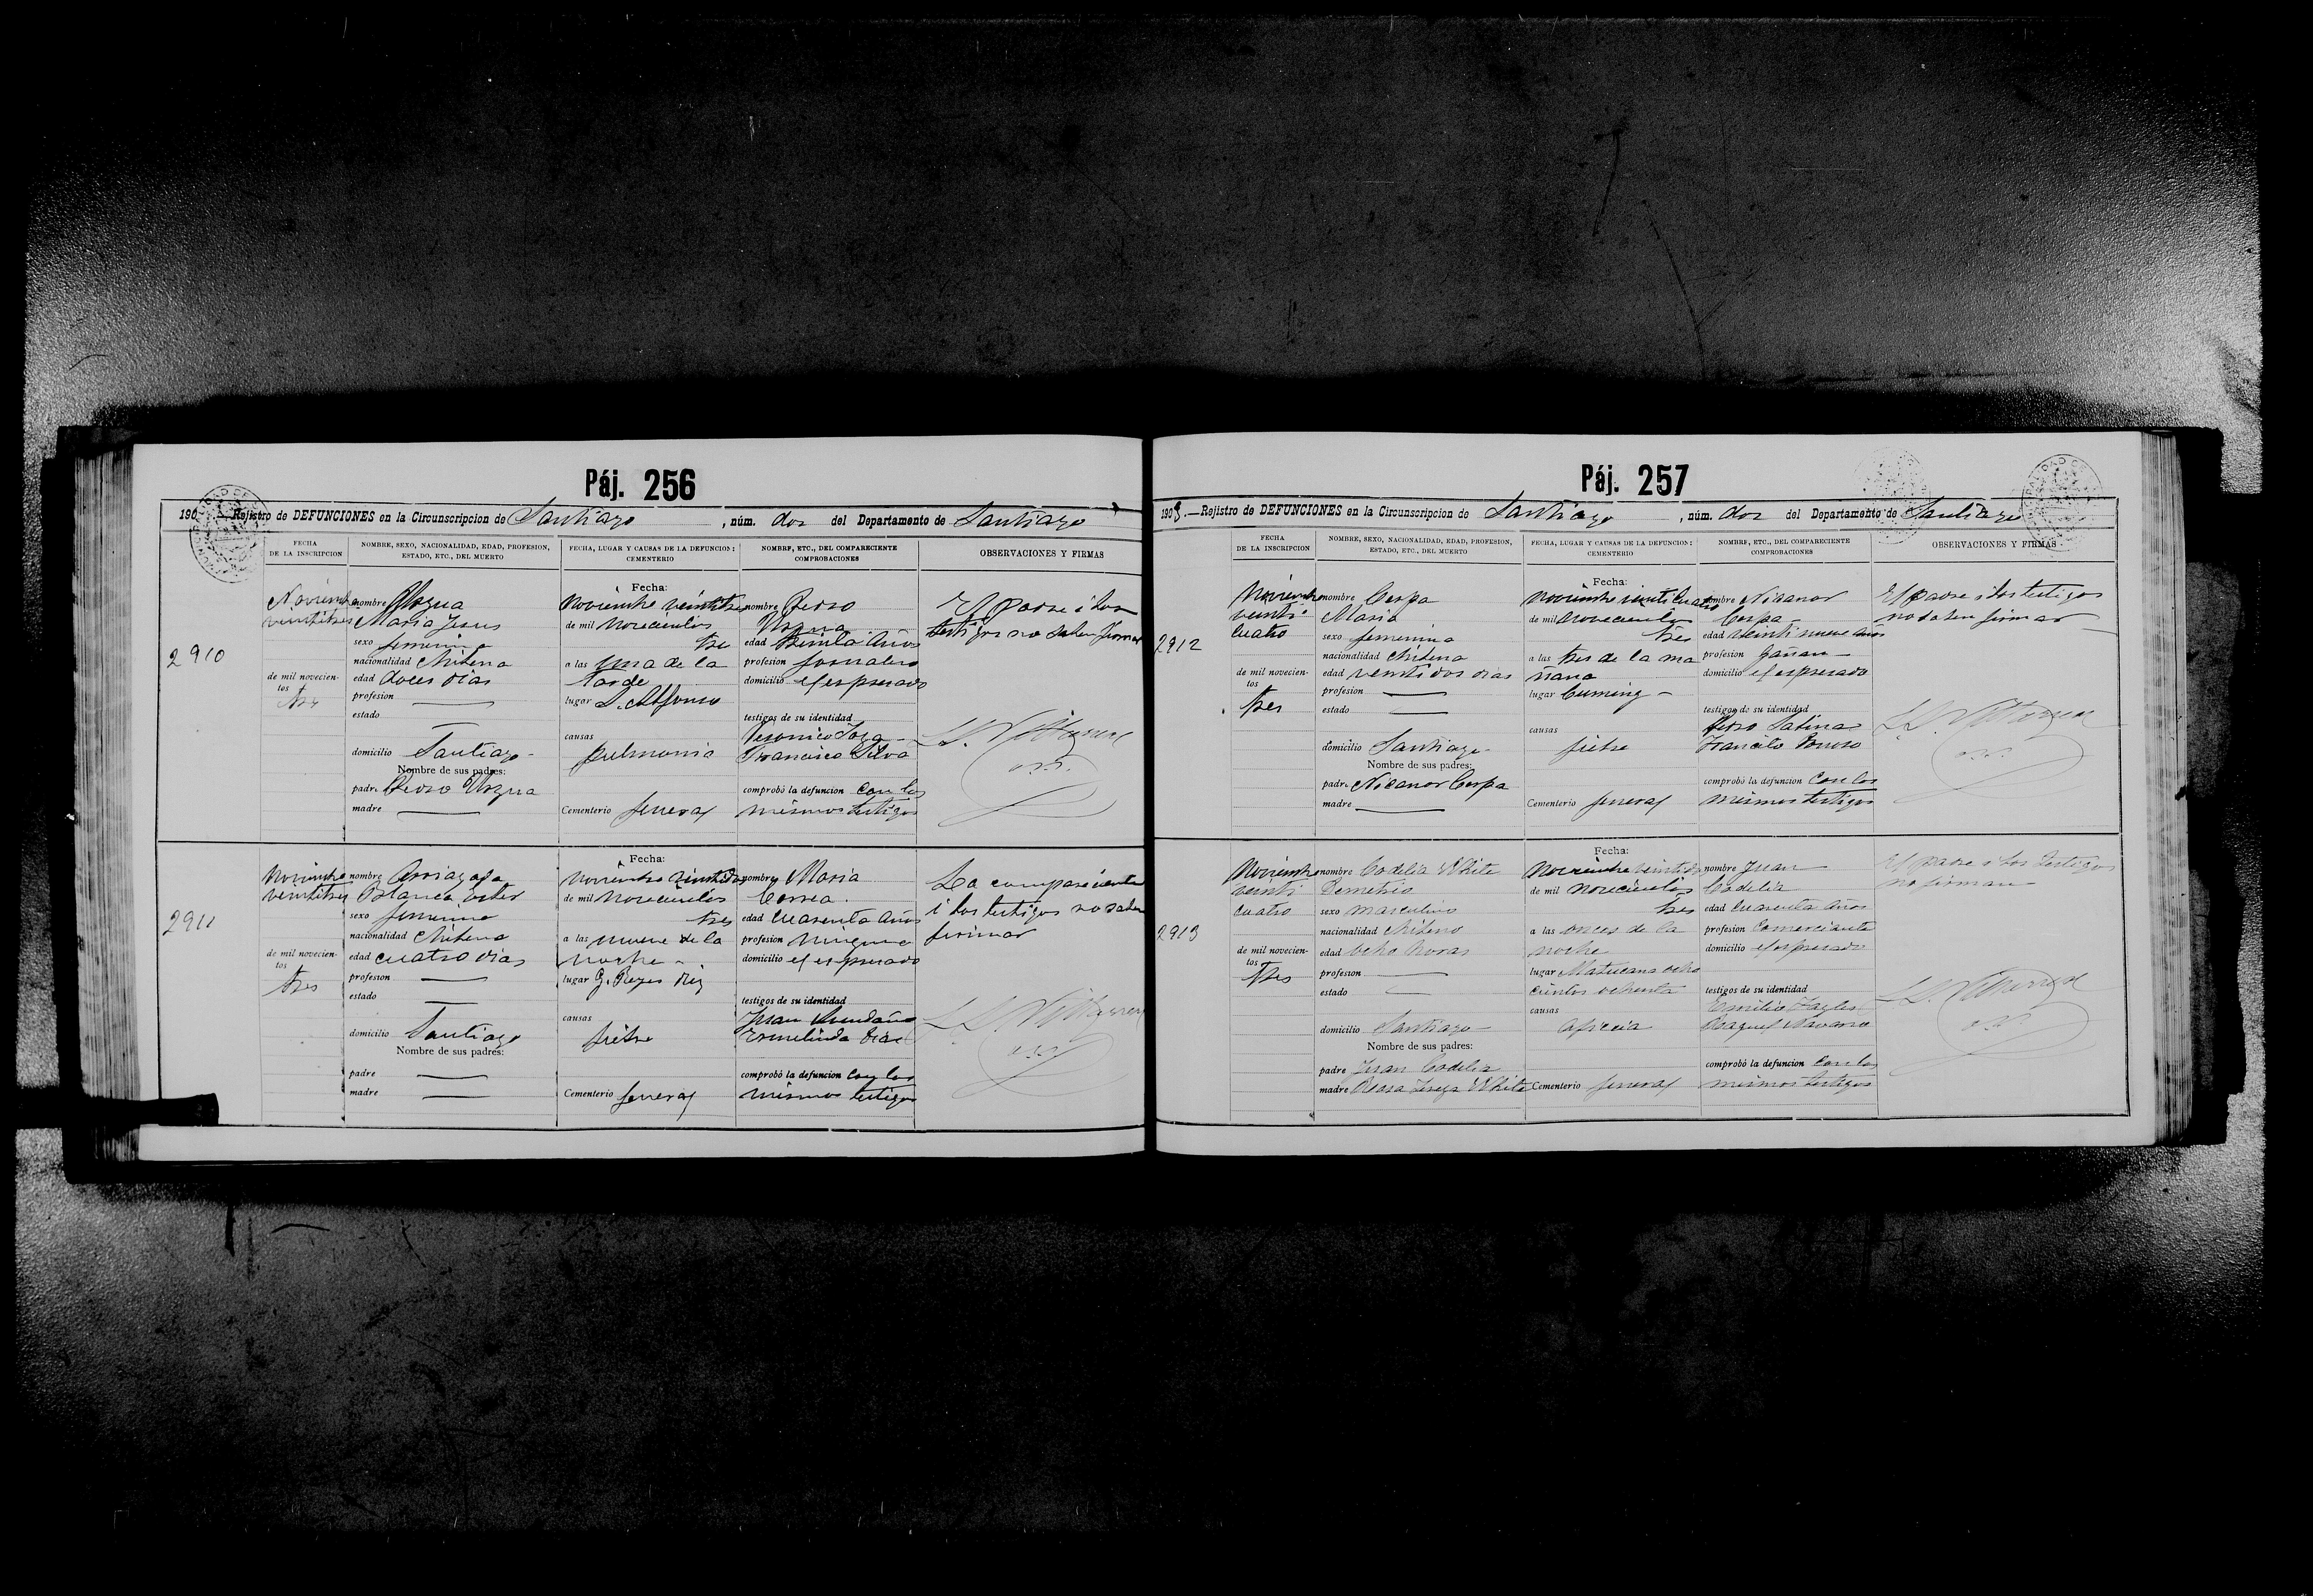 Páj. 256
190 .—Rejistro de DEFUNCIONES en la Circunscripcion de Santiago, núm. dos del Departamento de Santiago
FECHA DE LA INSCRIPCION
NOMBRE, SEXO, NACIONALIDAD, EDAD, PROFESION, ESTADO, ETC., DEL MUERTO
FECHA, LUGAR Y CAUSAS DE LA DEFUNCION: CEMENTERIO
NOMBRE, ETC., DEL COMPARECIENTE COMPROBACIONES
OBSERVACIONES Y FIRMAS
2910
Noviembre
veintitres
de mil novecientos
tres
nombre
Maria Jesus
sexo femenina
nacionalidad chilena
edad doces dias
profesion
estado
domicilio Santiago
Nombre de sus padres:
padre Pedro
madre
Fecha:
Noviembre veintitres
de mil novecientos
tres
a las una de la
tarde
lugar S. Alfonso
causas
pulmonia
Cementerio jeneral
nombre Pedro
edad treinta años
profesion jornalero
domicilio el espresado
testigos de su identidad
Francisco Silva
comprobó la defuncion con los
mismos testigos
El padre i los
testigos no saben firmar
2911
Noviembre
veintitres
de mil novecientos
tres
nombre Arriagada
Blanca Ester
sexo femenina
nacionalidad chilena
edad cuatro dias
profesion
estado
domicilio Santiago
Nombre de sus padres:
padre
madre
Fecha:
Noviembre veintidos
de mil novecientos
tres
a las nueve de la
noche
lugar G. Reyes
causas
fiebre
Cementerio jeneral
nombre Maria
Correa
edad cuarenta años
profesion ninguna
domicilio el espresado
testigos de su identidad
Juan
Ermelinda Dias
comprobó la defuncion con los
mismos testigos
La compareciente
i los testigos no saben
firmar
Páj. 257
1903.—Rejistro de DEFUNCIONES en la Circunscripcion de Santiago, núm. dos del Departamento de Santiago
FECHA DE LA INSCRIPCION
NOMBRE, SEXO, NACIONALIDAD, EDAD, PROFESION, ESTADO, ETC., DEL MUERTO
FECHA, LUGAR Y CAUSAS DE LA DEFUNCION: CEMENTERIO
NOMBRE, ETC., DEL COMPARECIENTE COMPROBACIONES
OBSERVACIONES Y FIRMAS
2912
Noviembre
veinti
cuatro
de mil novecientos
tres
nombre Cerpa
Maria
sexo femenina
nacionalidad chilena
edad veintidos dias
profesion
estado
domicilio Santiago
Nombre de sus padres:
padre Nicanor Cerpa
madre
Fecha:
Noviembre veinticuatro
de mil novecientos
tres
a las tres de la ma
ñana
lugar Cuming
causas
fiebre
Cementerio jeneral
nombre Nicanor
Cerpa
edad veintinueve años
profesion gañan
domicilio el espresado
testigos de su identidad
Pedro Salinas
Francisco Donoso
comprobó la defuncion con los
mismos testigos
El padre i los testigos
no saben firmar
2913
Noviembre
veinti
cuatro
de mil novecientos
tres
nombre Codelia White
Demetrio
sexo masculino
nacionalidad chileno
edad ocho horas
profesion
estado
domicilio Santiago
Nombre de sus padres:
padre Juan Codelia
madre Rosa White
Fecha:
Noviembre veintidos
de mil novecientos
tres
a las onces de la
noche
lugar Matucana ocho
cientos ochenta
causas
Cementerio jeneral
nombre Juan
Codelia
edad cuarenta años
profesion comerciante
domicilio el espresado
testigos de su identidad
Emilio Tagles
Raquel Navarro
comprobó la defuncion con los
mismos testigos
El padre i los testigos
no firman